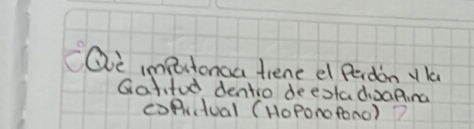 ¿Què importancia tiene el Perdón y la
Gatitud dentro de esta disciplina
espiritual (HoPonoPono)?